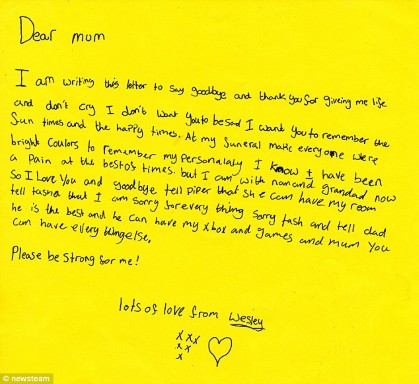 Dear mum
I am writing this letter to say goodbye and thank you for giveing me life
and don't cry I don't want you to be sad I want you to remember the
fun times and the happy times. At my funeral make everyone were
bright coulors to remember my personalaty I know I have been
a pain at the bestofs times. but I am with nan and grandad now
So I Love You and goodbye tell piper that she can have my room
tell tasha that I am sorry for every thing sorry tash and tell dad
he is the best and he can have my xbox and games and mum you
can have every thing else.
Please be strong for me!
lots of love from Wesley
x x x
x x
x
© newsteam